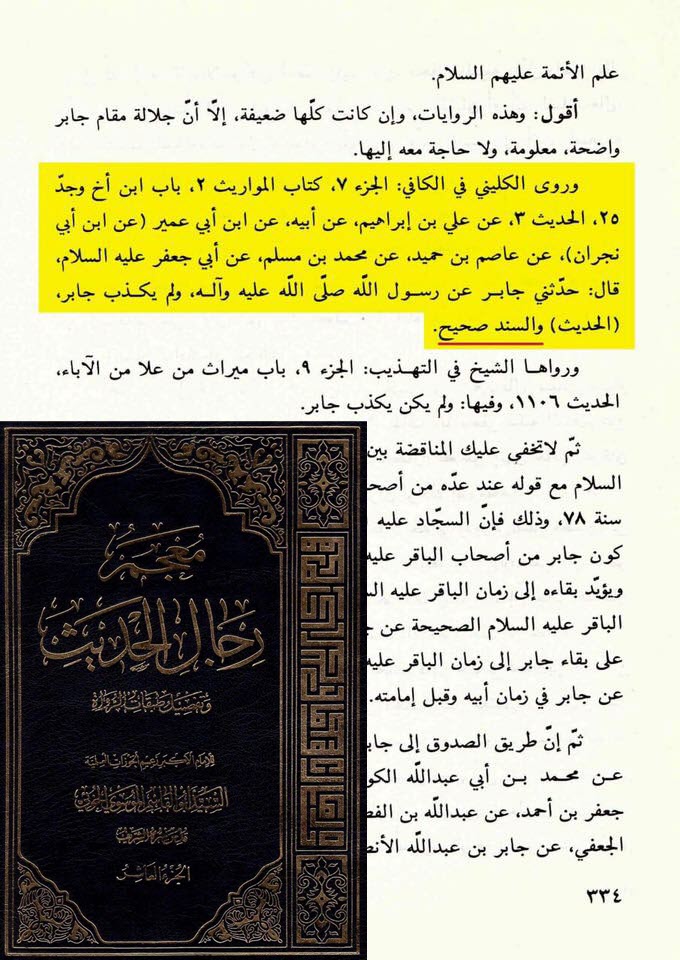 علم الأئمة عليهم السلام.
أقول: وهذه الروايات، وإن كانت كلّها ضعيفة، إلّا أنّ جلالة مقام جابر
واضحة، معلومة، ولا حاجة معه إليها.
وروى الكليني في الكافي: الجزء ٧، كتاب المواريث ٢، باب ابن أخ وجدّ
٢٥، الحديث ٣، عن علي بن إبراهيم، عن أبيه، عن ابن أبي عمير (عن ابن أبي
نجران)، عن عاصم بن حميد، عن محمد بن مسلم، عن أبي جعفر عليه السلام،
قال: حدّثني جابر عن رسول اللّه صلّى اللّه عليه وآله، ولم يكذب جابر،
(الحديث) والسند صحيح.
ورواها الشيخ في التهذيب: الجزء ٩، باب ميراث من علا من الآباء،
الحديث ١١٠٦، وفيها: ولم يكن يكذب جابر.
ثمّ لاتخفي عليك المناقضة بين
السلام مع قوله عند عدّه من أصحا
سنة ٧٨، وذلك فإنّ السجّاد عليه
كون جابر من أصحاب الباقر عليه
ويؤيّد بقاءه إلى زمان الباقر عليه
الباقر عليه السلام الصحيحة عن
على بقاء جابر إلى زمان الباقر عليه
عن جابر في زمان أبيه وقبل إمامته.
ثمّ إنّ طريق الصدوق إلى جابر
عن محمد بن أبي عبداللّه الكو
جعفر بن أحمد، عن عبداللّه بن الفض
الجعفي، عن جابر بن عبداللّه الأنص
٣٣٤
معجم
رجال الحديث
وتفصيل طبقات الرواة
للإمام الأكبر زعيم الحوزات العلمية
السيد أبو القاسم الموسوي الخوئي
قدس سره الشريف
الجزء العاشر